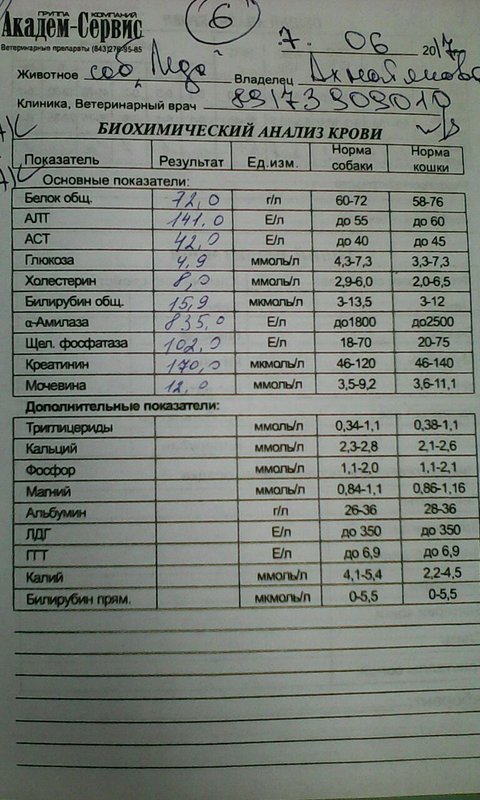 6
ГРУППА КОМПАНИЙ
Академ-Сервис
Ветеринарные препараты (843)276-95-85
7. 06 2017
Животное соб. "Леда" Владелец
Клиника, Ветеринарный врач 89173909010
БИОХИМИЧЕСКИЙ АНАЛИЗ КРОВИ
Показатель Результат Ед.изм. Норма собаки Норма кошки
Основные показатели:
Белок общ. 72,0 г/л 60-72 58-76
АЛТ 141,0 Е/л до 55 до 60
АСТ 42,0 Е/л до 40 до 45
Глюкоза 4,9 ммоль/л 4,3-7,3 3,3-7,3
Холестерин 8,0 ммоль/л 2,9-6,0 2,0-6,5
Билирубин общ. 15,9 мкмоль/л 3-13,5 3-12
α-Амилаза 835,0 Е/л до1800 до2500
Щел. фосфатаза 102,0 Е/л 18-70 20-75
Креатинин 170,0 мкмоль/л 46-120 46-140
Мочевина 12,0 ммоль/л 3,5-9,2 3,6-11,1
Дополнительные показатели:
Триглицериды ммоль/л 0,34-1,1 0,38-1,1
Кальций ммоль/л 2,3-2,8 2,1-2,6
Фосфор ммоль/л 1,1-2,0 1,1-2,1
Магний ммоль/л 0,84-1,1 0,86-1,16
Альбумин г/л 26-36 28-36
ЛДГ Е/л до 350 до 350
ГГТ Е/л до 6,9 до 6,9
Калий ммоль/л 4,1-5,4 2,2-4,5
Билирубин прям. мкмоль/л 0-5,5 0-5,5